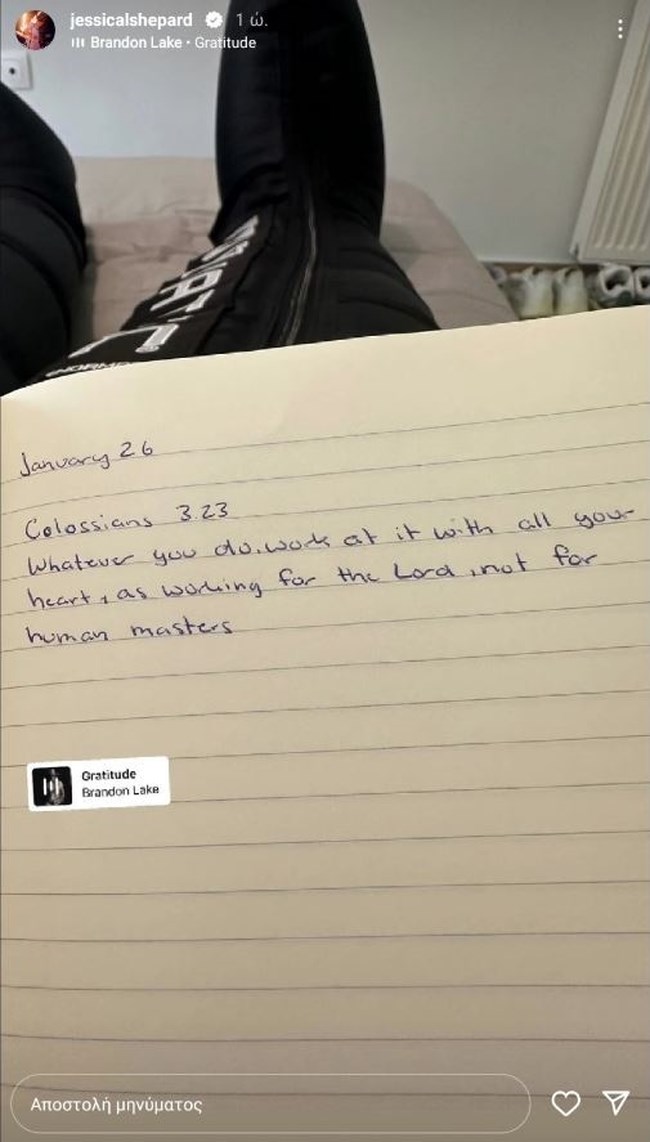 jessicalshepard 1 ώ.
Brandon Lake • Gratitude
January 26
Colossians 3.23
Whatever you do, work at it with all your
heart, as working for the Lord, not for
human masters
Gratitude
Brandon Lake
Αποστολή μηνύματος